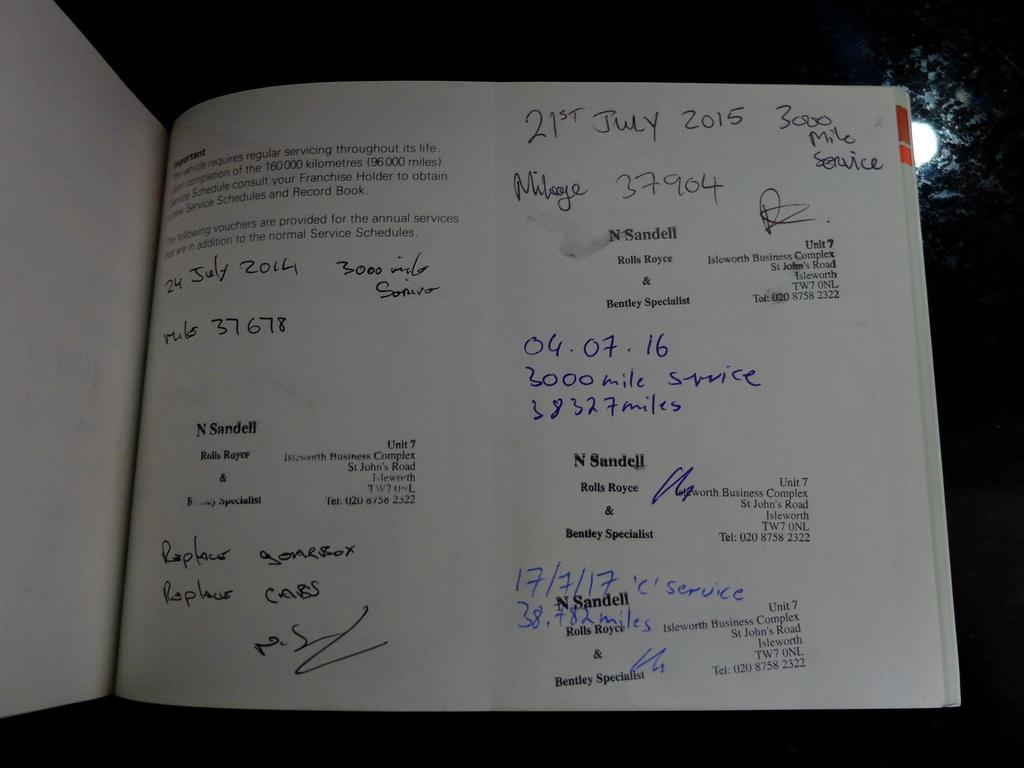 Important
The vehicle requires regular servicing throughout its life.
Upon completion of the 160 000 kilometres (96 000 miles)
Service Schedule consult your Franchise Holder to obtain
new Service Schedules and Record Book.
The following vouchers are provided for the annual services
that are in addition to the normal Service Schedules.
24 July 2014 3000 mile
Service
mile 37678
N Sandell
Rolls Royce
&
Bentley Specialist
Unit 7
Isleworth Business Complex
St John's Road
Isleworth
TW7 0NL
Tel: 020 8758 2322
Replace GEARBOX
Replace CABS
21ST July 2015 3000
Mile
Service
Mileage 37904
N Sandell
Rolls Royce
&
Bentley Specialist
Unit 7
Isleworth Business Complex
St John's Road
Isleworth
TW7 0NL
Tel: 020 8758 2322
04.07.16
3000 mile service
38327 miles
N Sandell
Rolls Royce
&
Bentley Specialist
Unit 7
Isleworth Business Complex
St John's Road
Isleworth
TW7 0NL
Tel: 020 8758 2322
17/7/17 'c' service
38,782 miles
N Sandell
Rolls Royce
&
Bentley Specialist
Unit 7
Isleworth Business Complex
St John's Road
Isleworth
TW7 0NL
Tel: 020 8758 2322